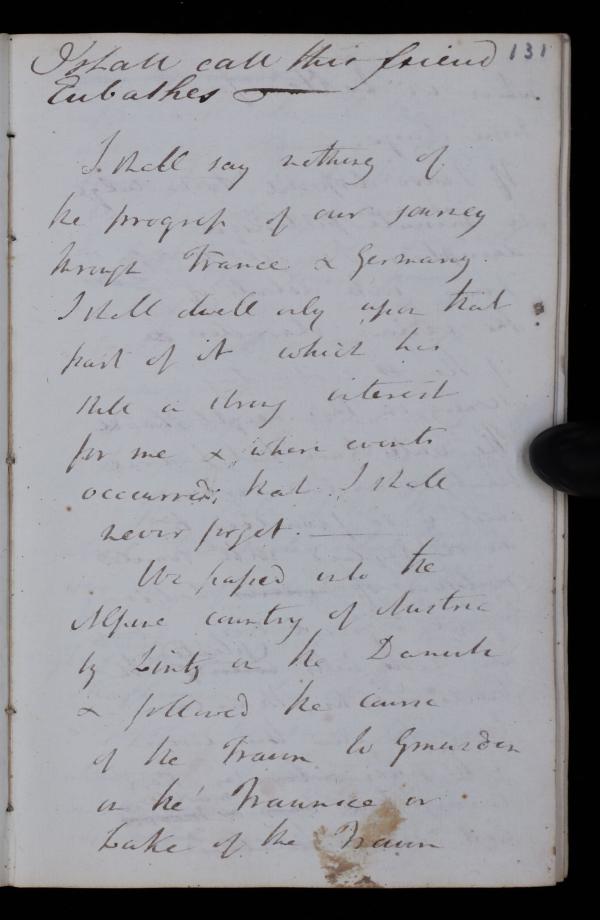 I shall call this friend 131
Eubathes —
I shall say nothing of
the progress of our journey
through France & Germany.
I shall dwell only upon that
part of it which has
still a strong interest
for me & where events
occurred, that I shall
never forget. —
We passed into the
Alpine country of Austria
by Lintz on the Danube
& followed the course
of the Traun to Gmunden
on the Traunsee or
Lake of the Traun